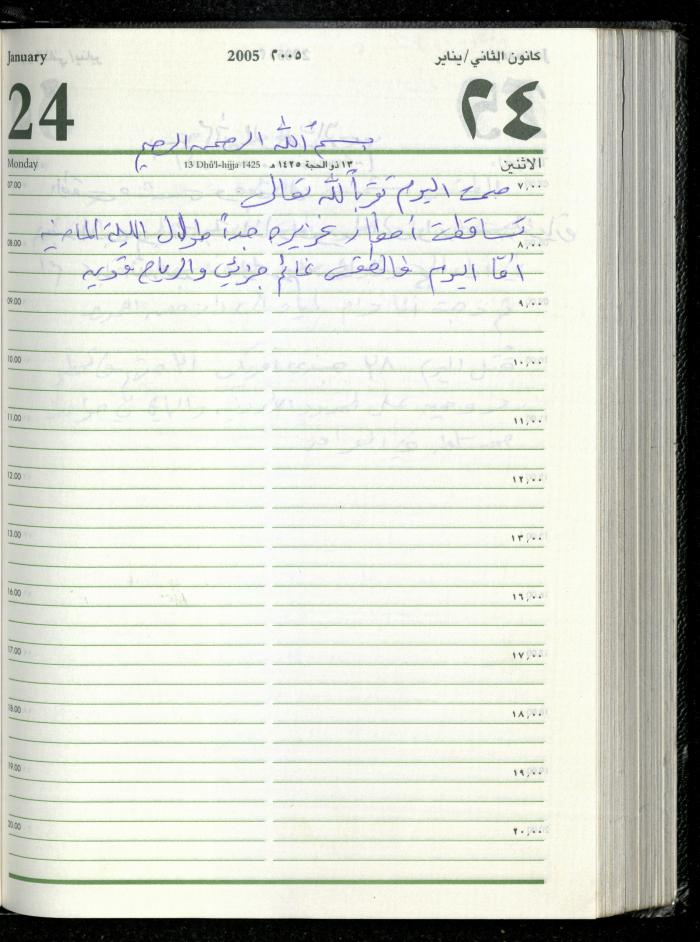 January 2005 ٢٠٠٥ كانون الثاني/يناير
24 ٢٤
بسم الله الرحمن الرحيم
Monday 13 Dhû'l-hijja 1425 ١٣ ذو الحجة ١٤٢٥ هـ الاثنين
07.00 صمت اليوم تقرباً لله تعالى ٧,٠٠
تساقطت أمطار غزيره جداً طوال الليلة الماضية
08.00 ٨,٠٠
أمّا اليوم فالطقس غائم جزئي والرياح قويه
09.00 ٩,٠٠
10.00 ١٠,٠٠
11.00 ١١,٠٠
12.00 ١٢,٠٠
13.00 ١٣,٠٠
16.00 ١٦,٠٠
17.00 ١٧,٠٠
18.00 ١٨,٠٠
19.00 ١٩,٠٠
20.00 ٢٠,٠٠